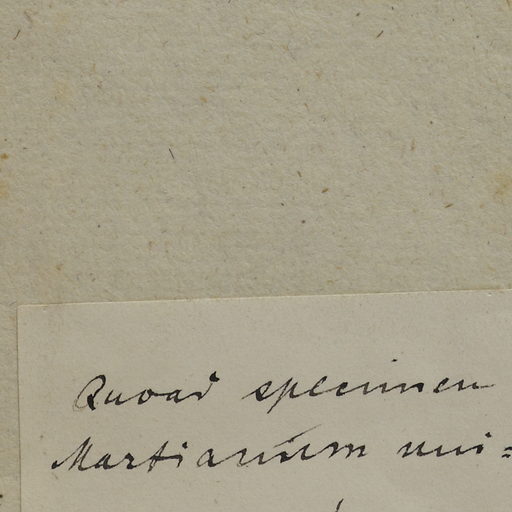 Quoad specimen
Martianum uni=